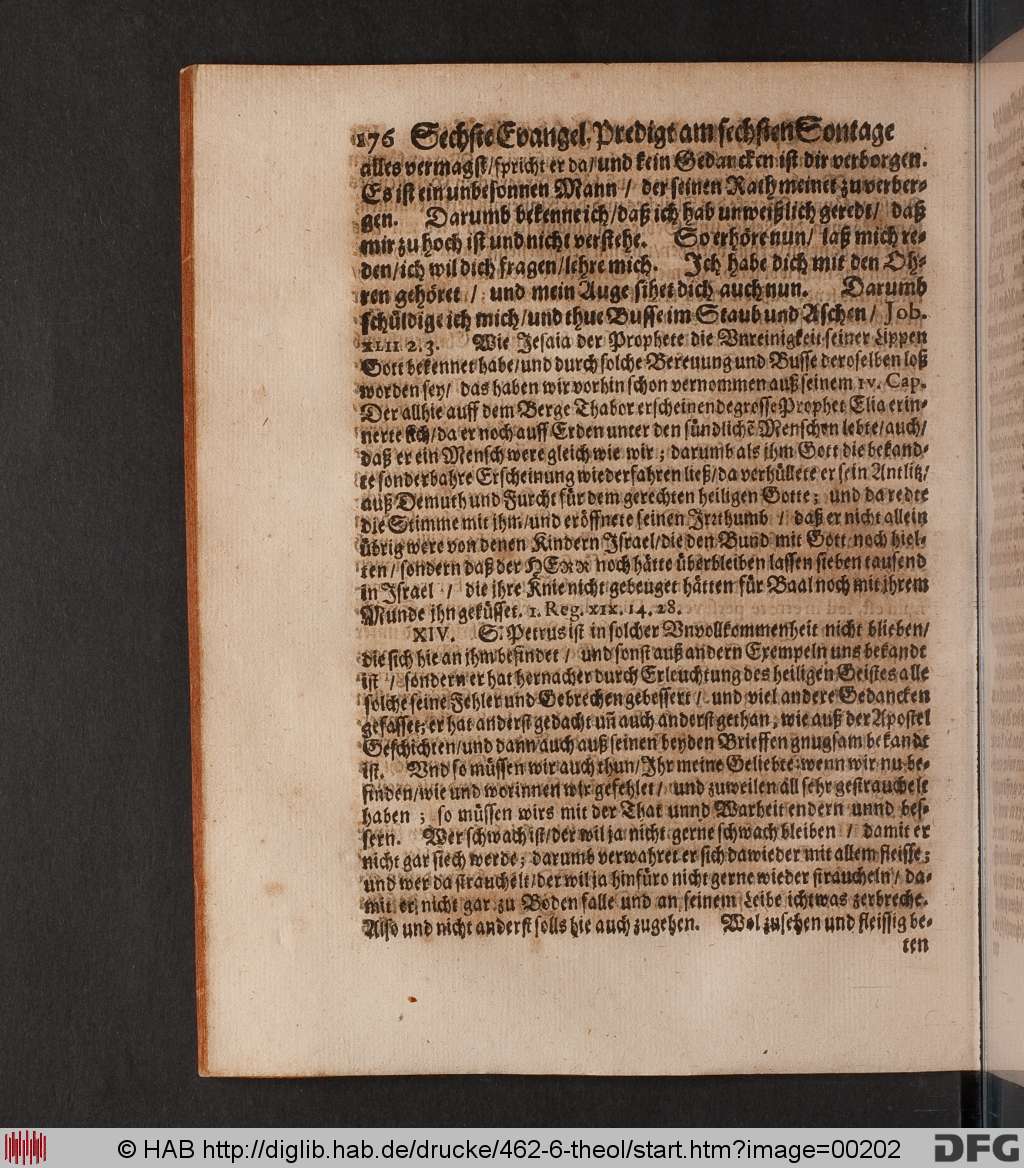 176 Sechste Evangel. Predigt am sechsten Sontage
alles vermagst/spricht er da/und kein Gedancken ist dir verborgen.
Es ist ein unbesonnen Mann / der seinen Rath meinet zu verber-
gen. Darumb bekenne ich/daß ich hab unweißlich geredt/ daß
mir zu hoch ist und nicht verstehe. So erhöre nun/ laß mich re-
den/ich wil dich fragen/lehre mich. Ich habe dich mit den Oh-
ren gehöret / und mein Auge sihet dich auch nun. Darumb
schüldige ich mich/und thue Busse im Staub und Aschen/ Job.
XLII 2. 3. Wie Jesaia der Prophete die Vnreinigkeit seiner Lippen
Gott bekennet habe/und durch solche Bereuung und Busse deroselben loß
worden sey/ das haben wir vorhin schon vernommen auß seinem IV. Cap.
Der allhie auff dem Berge Thabor erscheinende grosse Prophet Elia erin-
nerte sich/da er noch auff Erden unter den sündlichẽ Menschen lebte/auch/
daß er ein Mensch were gleich wie wir; darumb als ihm Gott die bekand-
te sonderbahre Erscheinung wiederfahren ließ/da verhüllete er sein Antlitz/
auß Demuth und Furcht für dem gerechten heiligen Gotte; und da redte
die Stimme mit ihm/und eröffnete seinen Irrthumb / daß er nicht allein
übrig were von denen Kindern Israel/die den Bund mit Gott noch hiel-
ten/ sondern daß der HERR noch hätte überbleiben lassen sieben tausend
in Israel / die ihre Knie nicht gebeuget hätten für Baal noch mit ihrem
Munde ihn geküsset. 1. Reg. XIX. 14. 28.
XIV. S. Petrus ist in solcher Vnvollkommenheit nicht blieben/
die sich hie an ihm befindet / und sonst auß andern Exempeln uns bekandt
ist / sondern er hat hernacher durch Erleuchtung des heiligen Geistes alle
solche seine Fehler und Gebrechen gebessert / und viel andere Gedancken
gefasset; er hat anderst gedacht uñ auch anderst gethan, wie auß der Apostel
Geschichten/und dann auch auß seinen beyden Brieffen gnugsam bekandt
ist. Vnd so müssen wir auch thun/Ihr meine Geliebte: wenn wir nu be-
finden/wie und worinnen wir gefehlet/ und zuweilen all sehr gestrauchelt
haben ; so müssen wirs mit der That unnd Warheit endern unnd bes-
sern. Wer schwach ist/der wil ja nicht gerne schwach bleiben / damit er
nicht gar siech werde; darumb verwahret er sich dawieder mit allem fleisse;
und wer da strauchelt/der wil ja hinfüro nicht gerne wieder straucheln/ da-
mit er nicht gar zu Boden falle und an seinem Leibe ichtwas zerbreche.
Also und nicht anderst solls hie auch zugehen. Wol zusehen und fleissig be-
ten
© HAB http://diglib.hab.de/drucke/462-6-theol/start.htm?image=00202
DFG